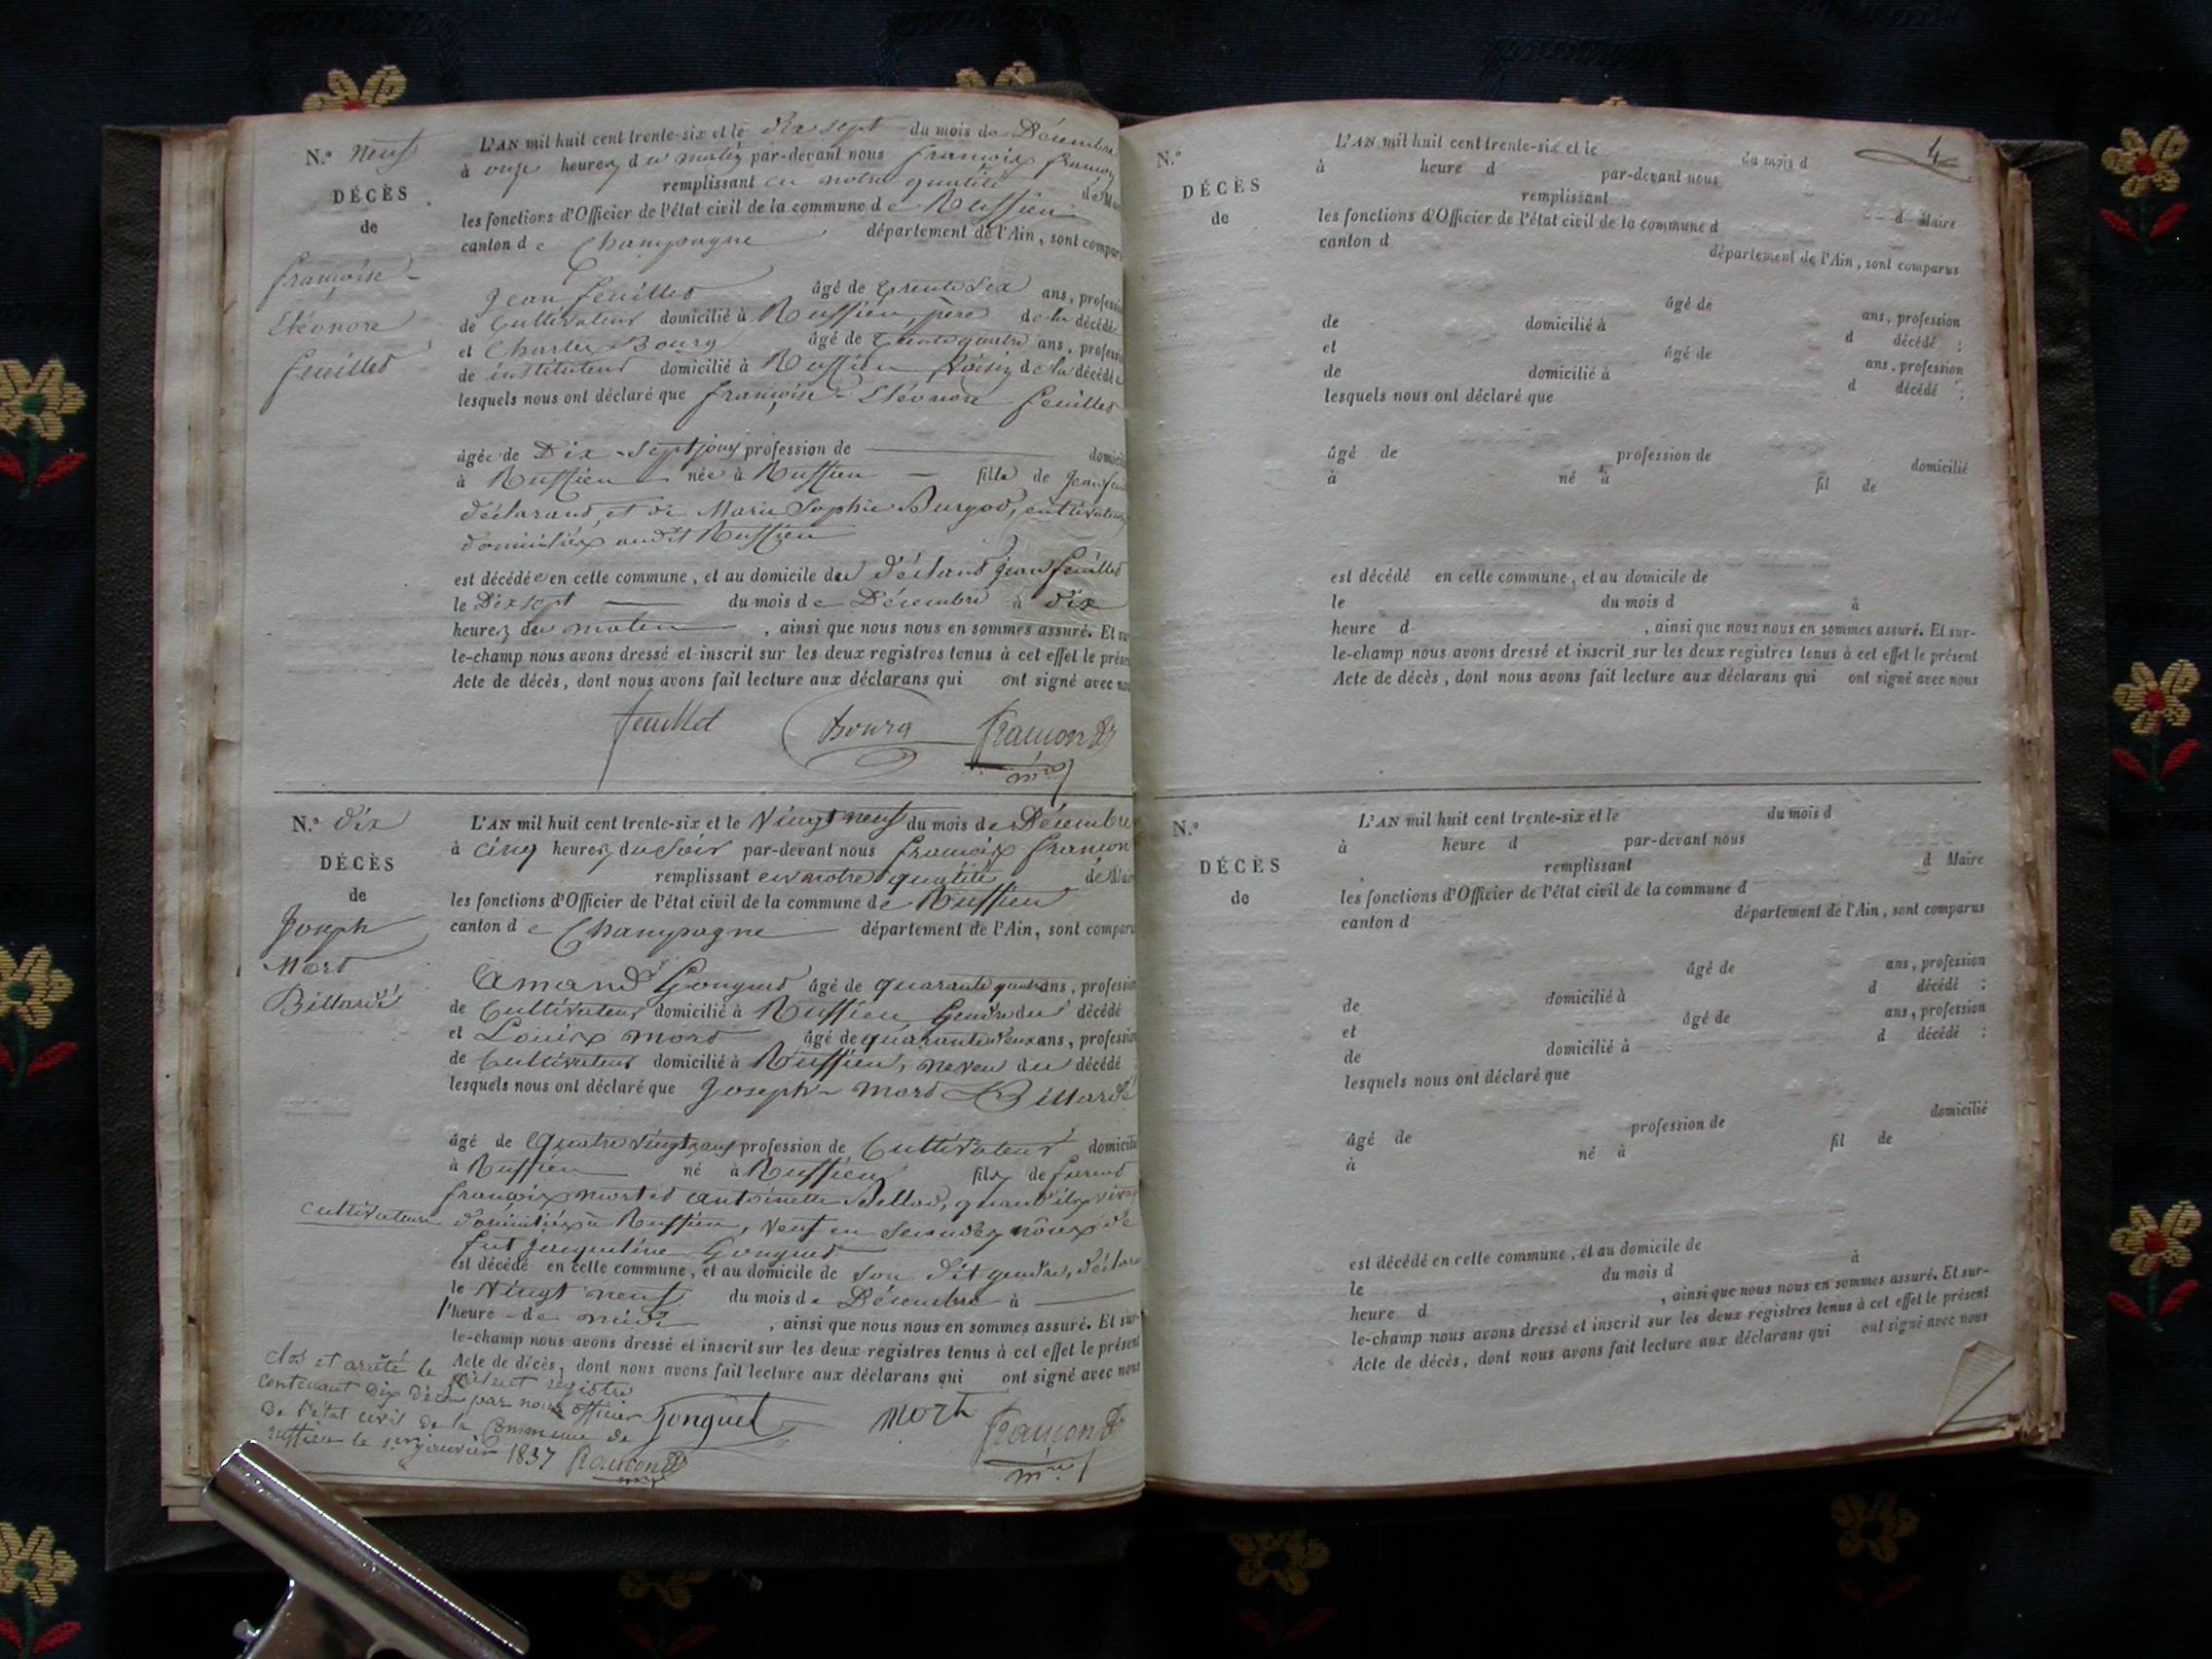 N.º neuf
DÉCÈS
de
françoise
Eléonore
feuillet
L'AN mil huit cent trente-six et le dix sept du mois de Décembre
à onze heures du matin par-devant nous françois
remplissant en notre qualité de
les fonctions d'Officier de l'état civil de la commune de Ruffieu
canton de Champagne département de l'Ain, sont
Jean feuillet âgé de trente six ans,
de Cultivateur domicilié à Ruffieu, père de la décédée
et Charles Bourg âgé de trente quatre ans,
de instituteur domicilié à Ruffieu voisin de la décédée
lesquels nous ont déclaré que françoise Eléonore feuillet
âgée de Dix-Sept jours profession de
à Ruffieu née à Ruffieu fille de Jean
déclarant, et de Marie Sophie Burgod, cultivateurs
domiciliés audit Ruffieu
est décédée en cette commune, et au domicile du déclarant Jean feuillet
le Dix sept du mois de Décembre à dix
heures du matin, ainsi que nous nous en sommes assuré. Et
le-champ nous avons dressé et inscrit sur les deux registres tenus à cet effet le
Acte de décès, dont nous avons fait lecture aux déclarans qui ont signé avec
feuillet Bourg
N.º dix
DÉCÈS
de
Joseph
Mort
Billardé
L'AN mil huit cent trente-six et le Vingt neuf du mois de Décembre
à cinq heures du soir par-devant nous françois
remplissant en notre qualité de
les fonctions d'Officier de l'état civil de la commune de Ruffieu
canton de Champagne département de l'Ain, sont
Amand Gonguet âgé de quarante quatre ans,
de Cultivateur domicilié à Ruffieu Gendre du décédé
et Louis mort âgé de quarante deux ans,
de Cultivateur domicilié à Ruffieu, neveu du décédé
lesquels nous ont déclaré que Joseph mort Billardé
âgé de Quatre vingt ans profession de Cultivateur
à Ruffieu né à Ruffieu fils de furent
françois mort et antoinette Bellod, quand ils
cultivateurs domiciliés à Ruffieu, veuf en secondes nôces de
fut jacqueline Gonguet
est décédé en cette commune, et au domicile de son dit gendre,
le Vingt neuf du mois de Décembre à
l'heure de midi, ainsi que nous nous en sommes assuré. Et
le-champ nous avons dressé et inscrit sur les deux registres tenus à cet effet le présent
Acte de décès, dont nous avons fait lecture aux déclarans qui ont signé avec nous
clos et arrêté le présent registre
contenant Dix Décès par nous officier
de l'état civil de la Commune de
ruffieu le 1er janvier 1837
Gonguet mort
4
N.º
DÉCÈS
de
L'AN mil huit cent trente-six et le du mois d
à heure d par-devant nous
remplissant d Maire
les fonctions d'Officier de l'état civil de la commune d
canton d département de l'Ain, sont comparus
âgé de ans, profession
de domicilié à d décédé ;
et âgé de ans, profession
de domicilié à d décédé ;
lesquels nous ont déclaré que
âgé de profession de domicilié
à né à fil de
est décédé en cette commune, et au domicile de
le du mois d à
heure d , ainsi que nous nous en sommes assuré. Et sur-
le-champ nous avons dressé et inscrit sur les deux registres tenus à cet effet le présent
Acte de décès, dont nous avons fait lecture aux déclarans qui ont signé avec nous
N.º
DÉCÈS
de
L'AN mil huit cent trente-six et le du mois d
à heure d par-devant nous
remplissant d Maire
les fonctions d'Officier de l'état civil de la commune d
canton d département de l'Ain, sont comparus
âgé de ans, profession
de domicilié à d décédé ;
et âgé de ans, profession
de domicilié à d décédé ;
lesquels nous ont déclaré que
âgé de profession de domicilié
à né à fil de
est décédé en cette commune, et au domicile de
le du mois d à
heure d , ainsi que nous nous en sommes assuré. Et sur-
le-champ nous avons dressé et inscrit sur les deux registres tenus à cet effet le présent
Acte de décès, dont nous avons fait lecture aux déclarans qui ont signé avec nous